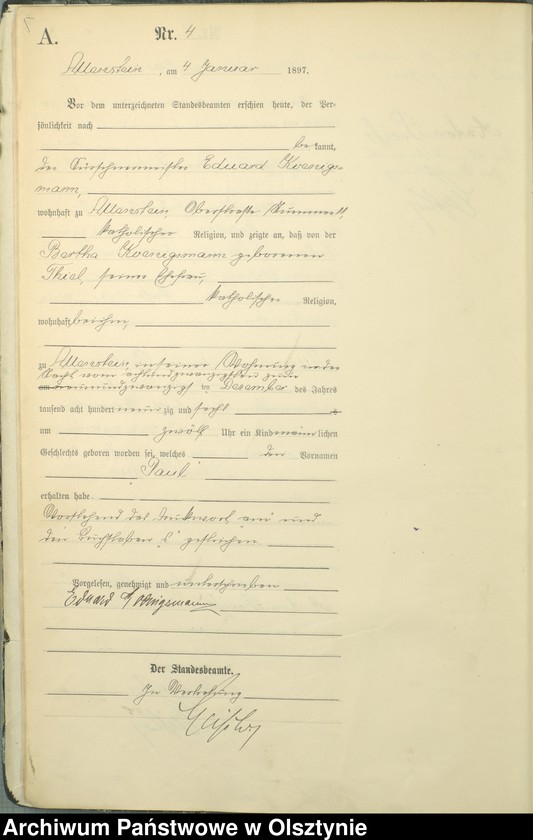 A.
Nr. 4
Allenstein, am 4 Januar 1897.
Vor dem unterzeichneten Standesbeamten erschien heute, der Per-
sönlichkeit nach
bekannt,
der Kürschnermeister Eduard Koenigs-
mann,
wohnhaft zu Allenstein Oberstraße
katholischer Religion, und zeigte an, daß von der
Bertha Koenigsmann geborenen
Thiel, seiner Ehefrau,
katholischer Religion,
wohnhaft bei ihm,
zu Allenstein, in seiner Wohnung in der
Nacht vom achtundzwanzigsten zum
am neunundzwanzigst en Dezember des Jahres
tausend acht hundert neunzig und sechs
um zwölf Uhr ein Kind männlichen
Geschlechts geboren worden sei, welches den Vornamen
Paul
erhalten habe.
Vorstehend das Druckwort „am“ und
den Buchstaben „s“ gestrichen
Vorgelesen, genehmigt und unterschrieben
Eduard Koenigsmann
Der Standesbeamte.
In Vertretung
Archiwum Państwowe w Olsztynie